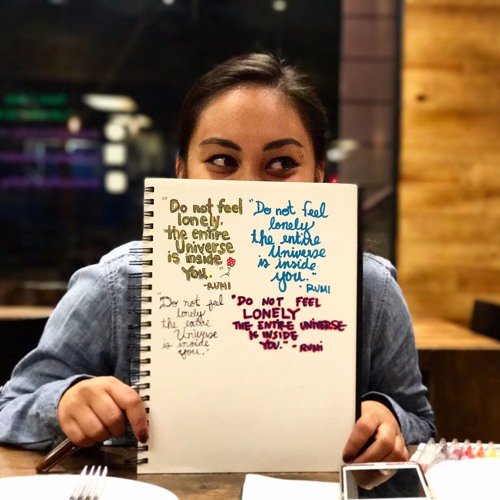 "Do not feel
lonely,
the entire
Universe
is inside
You."
-RUMI
"Do not feel
lonely
the entire
Universe
is inside
you."
- RUMI
"Do not feel
lonely
the entire
Universe
is inside
you."
"DO NOT FEEL
LONELY
THE ENTIRE UNIVERSE
IS INSIDE
YOU." - RUMI